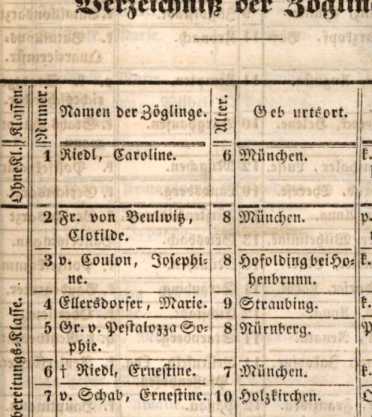 Verzeichniß der Zöglin
Klassen. Numer. Namen der Zöglinge. Alter. Geburtsort.
OhneKl. 1 Riedl, Caroline. 6 München. k.
2 Fr. von Beulwitz, 8 München.
Clotilde.
3 v. Coulon, Josephi- 8 Hofolding bei Ho- k.
ne. henbrunn.
4 Ellersdorfer, Marie. 9 Straubing. k.
5 Gr. v. Pestalozza So- 8 Nürnberg.
phie.
bereitungs-Klasse. 6 † Riedl, Ernestine. 7 München. k.
7 v. Schab, Ernestine. 10 Holzkirchen.